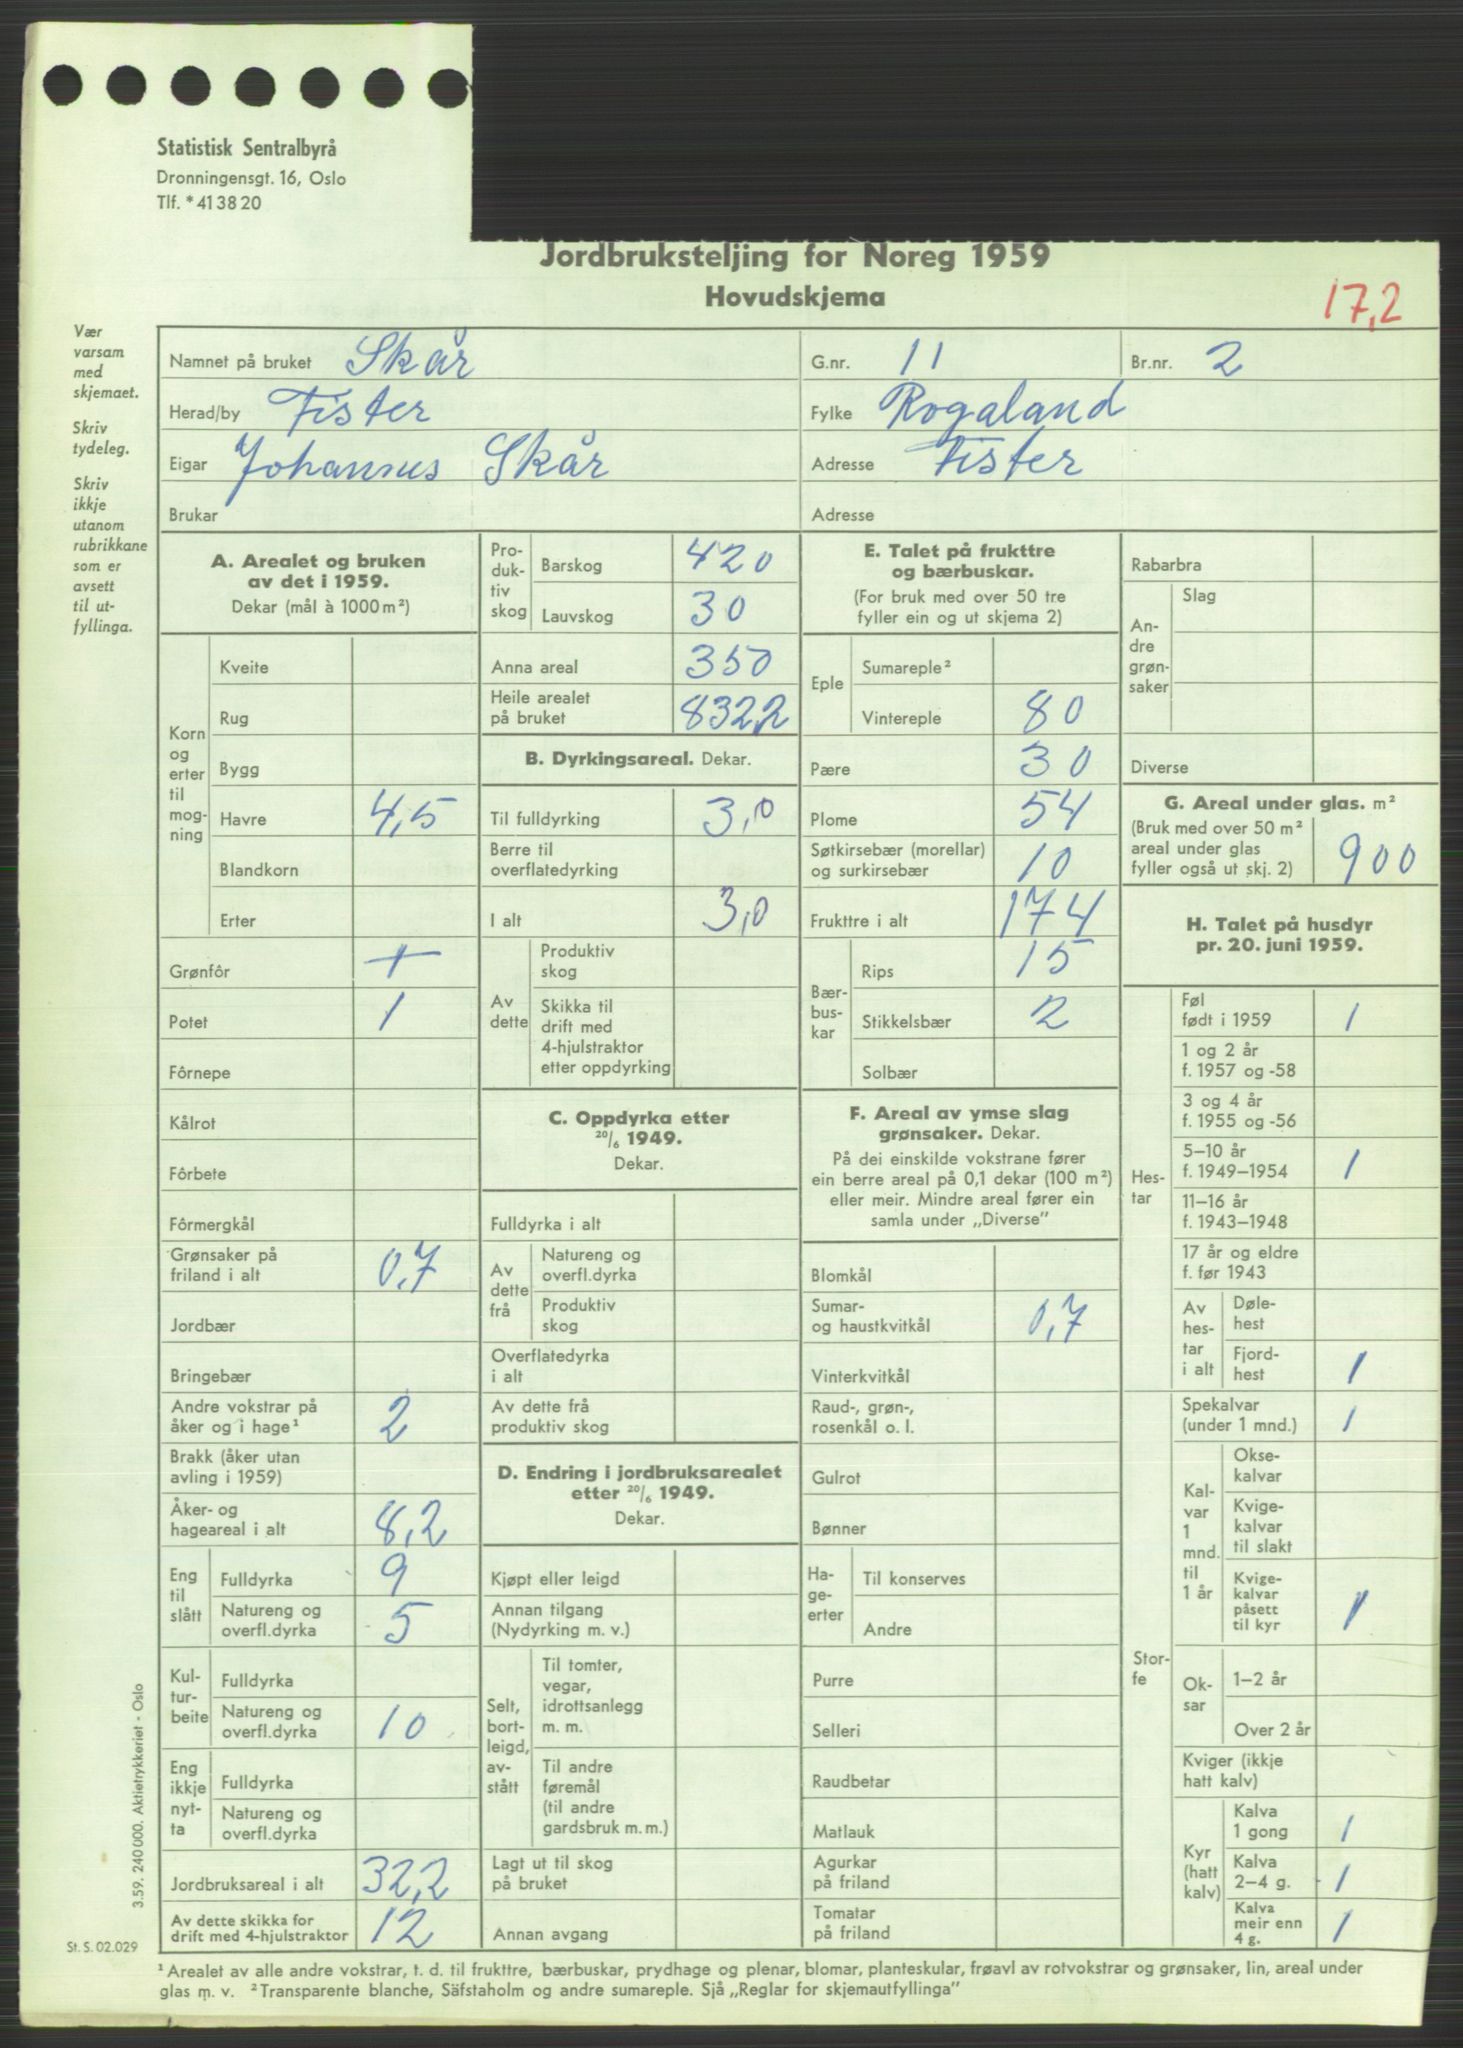 Statistisk Sentralbyrå
Dronningensgt. 16, Oslo
Tlf. * 41 38 20
Jordbruksteljing for Noreg 1959
Hovudskjema
17,2
Vær
varsam
med
skjemaet.
Skriv
tydeleg.
Skriv
ikkje
utanom
rubrikkane
som er
avsett
til ut-
fyllinga.
Namnet på bruket Skår
G.nr. 11
Br.nr. 2
Herad/by Fister
Fylke Rogaland
Eigar Johannes Skår
Adresse Fister
Brukar
Adresse
A. Arealet og bruken
av det i 1959.
Dekar (mål à 1000 m²)
Korn
og
erter
til
mog-
ning
Kveite
Rug
Bygg
Havre 4,5
Blandkorn
Erter
Grønfôr +
Potet 1
Fôrnepe
Kålrot
Fôrbete
Fôrmergkål
Grønsaker på
friland i alt 0,7
Jordbær
Bringebær
Andre vokstrar på
åker og i hage¹ 2
Brakk (åker utan
avling i 1959)
Åker- og
hageareal i alt 8,2
Eng
til
slått
Fulldyrka 9
Natureng og
overfl.dyrka 5
Kul-
tur-
beite
Fulldyrka
Natureng og
overfl.dyrka 10
Eng
ikkje
nyt-
ta
Fulldyrka
Natureng og
overfl.dyrka
Jordbruksareal i alt 32,2
Av dette skikka for
drift med 4-hjulstraktor 12
Pro-
duk-
tiv
skog
Barskog 420
Lauvskog 30
Anna areal 350
Heile arealet
på bruket 832,2
B. Dyrkingsareal. Dekar.
Til fulldyrking 3,0
Berre til
overflatedyrking
I alt 3,0
Av
dette
Produktiv
skog
Skikka til
drift med
4-hjulstraktor
etter oppdyrking
C. Oppdyrka etter
20/6 1949.
Dekar.
Fulldyrka i alt
Av
dette
frå
Natureng og
overfl.dyrka
Produktiv
skog
Overflatedyrka
i alt
Av dette frå
produktiv skog
D. Endring i jordbruksarealet
etter 20/6 1949.
Dekar.
Kjøpt eller leigd
Annan tilgang
(Nydyrking m. v.)
Selt,
bort-
leigd,
av-
stått
Til tomter,
vegar,
idrottsanlegg
m. m.
Til andre
føremål
(til andre
gardsbruk m. m.)
Lagt ut til skog
på bruket
Annan avgang
E. Talet på frukttre
og bærbuskar.
(For bruk med over 50 tre
fyller ein og ut skjema 2)
Eple
Sumareple²
Vintereple 80
Pære 30
Plome 54
Søtkirsebær (morellar)
og surkirsebær 10
Frukttre i alt 174
Bær-
bus-
kar
Rips 15
Stikkelsbær 2
Solbær
F. Areal av ymse slag
grønsaker. Dekar.
På dei einskilde vokstrane fører
ein berre areal på 0,1 dekar (100 m²)
eller meir. Mindre areal fører ein
samla under „Diverse”
Blomkål
Sumar-
og haustkvitkål 0,7
Vinterkvitkål
Raud-, grøn-,
rosenkål o. l.
Gulrot
Bønner
Ha-
ge-
erter
Til konserves
Andre
Purre
Selleri
Raudbetar
Matlauk
Agurkar
på friland
Tomatar
på friland
Rabarbra
An-
dre
grøn-
saker
Slag
Diverse
G. Areal under glas. m²
(Bruk med over 50 m²
areal under glas
fyller også ut skj. 2) 900
H. Talet på husdyr
pr. 20. juni 1959.
Hes-
tar
Føl
født i 1959 1
1 og 2 år
f. 1957 og -58
3 og 4 år
f. 1955 og -56
5–10 år
f. 1949–1954 1
11–16 år
f. 1943–1948
17 år og eldre
f. før 1943
Av
hes-
tar
i alt
Døle-
hest
Fjord-
hest 1
Stor-
fe
Spekalvar
(under 1 mnd.) 1
Kal-
var
1
mnd.
til
1 år
Okse-
kalvar
Kvige-
kalvar
til slakt
Kvige-
kalvar
påsett
til kyr 1
Ok-
sar
1–2 år
Over 2 år
Kviger (ikkje
hatt kalv)
Kyr
(hatt
kalv)
Kalva
1 gong 1
Kalva
2–4 g. 1
Kalva
meir enn
4 g. 1
3.59. 240 000. Aktietrykkeriet - Oslo
St. S. 02.029
¹ Arealet av alle andre vokstrar, t. d. til frukttre, bærbuskar, prydhage og plenar, blomar, planteskular, frøavl av rotvokstrar og grønsaker, lin, areal under
glas m. v. ² Transparente blanche, Säfstaholm og andre sumareple. Sjå „Reglar for skjemautfyllinga”